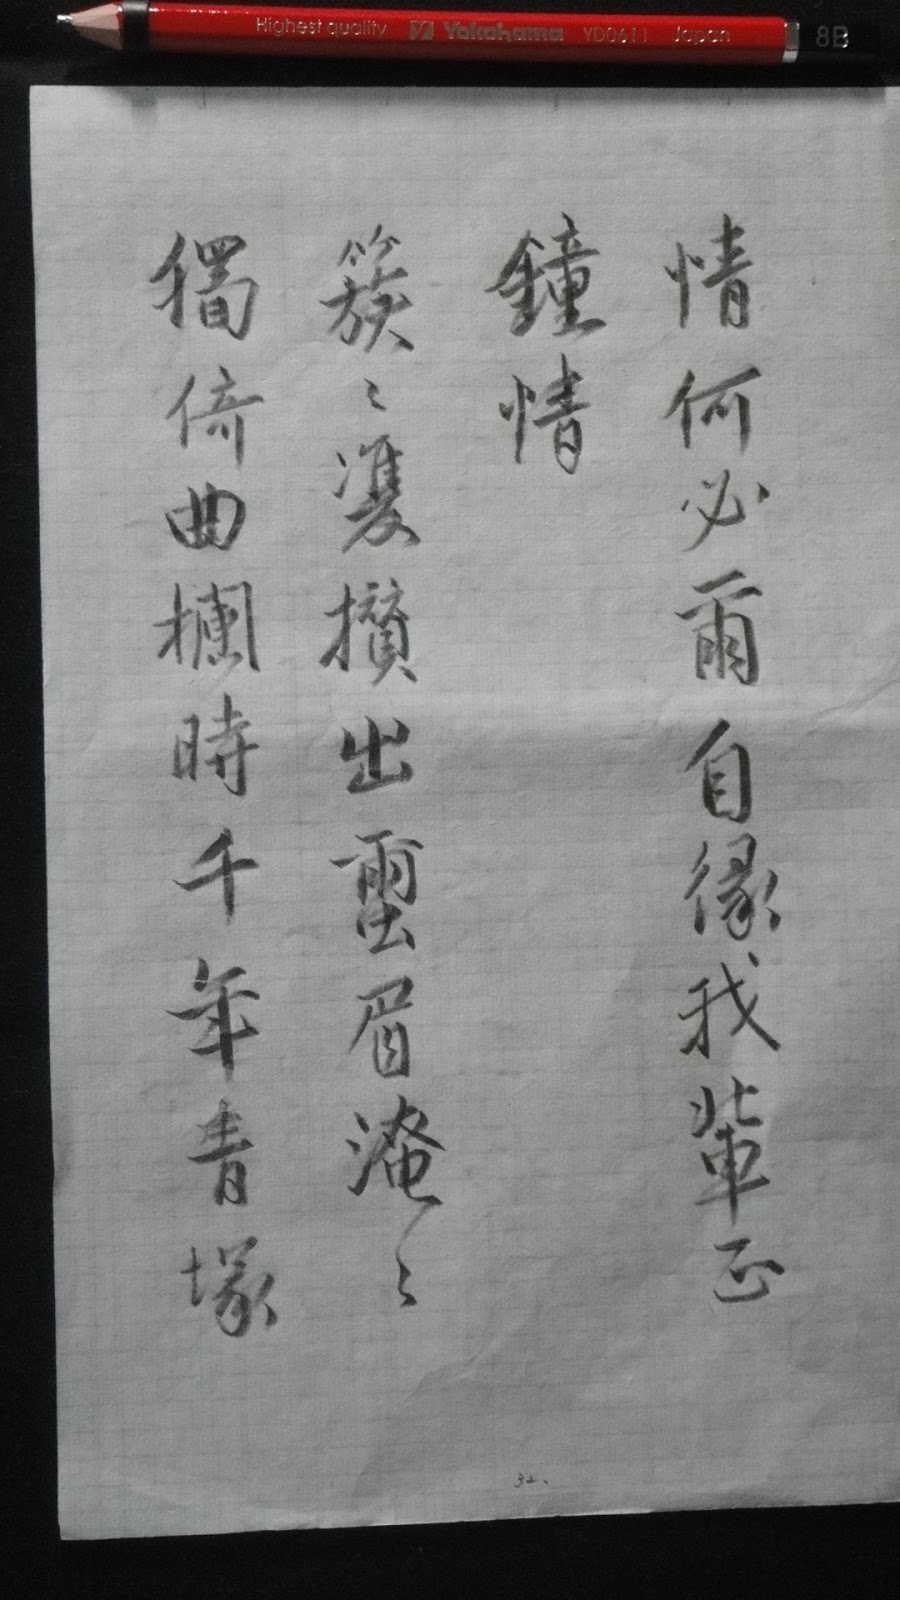 Highest quality Yokohama YD0611 Japan 8B
情何必爾自緣我輩正
鐘情
簇々雙攢出蠒眉淹々
獨倚曲欄時千年青塚